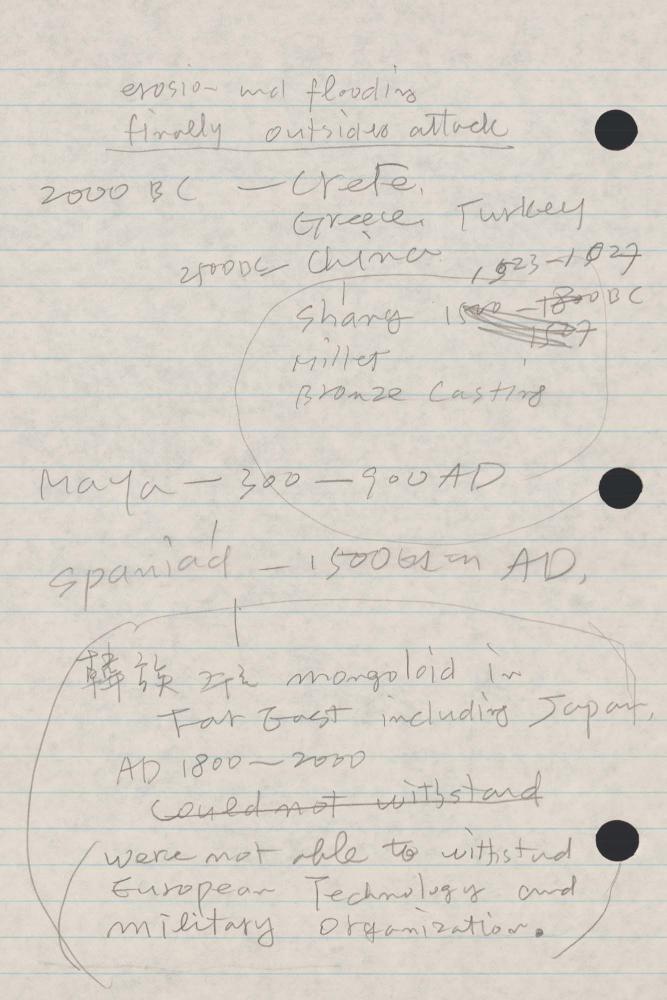 erosion and flooding
finally outsides attack
2000 BC — Crete,
Greece, Turkey
2500BC — China
1523-1027
Shang
Millet
Bronze Casting
Maya — 300 — 900 AD
Spaniad — 1500 AD,
韓族 mongoloid in
Far East including Japan,
AD 1800-2000
Could not withstand
were not able to withstnd
European Technology and
military organization.